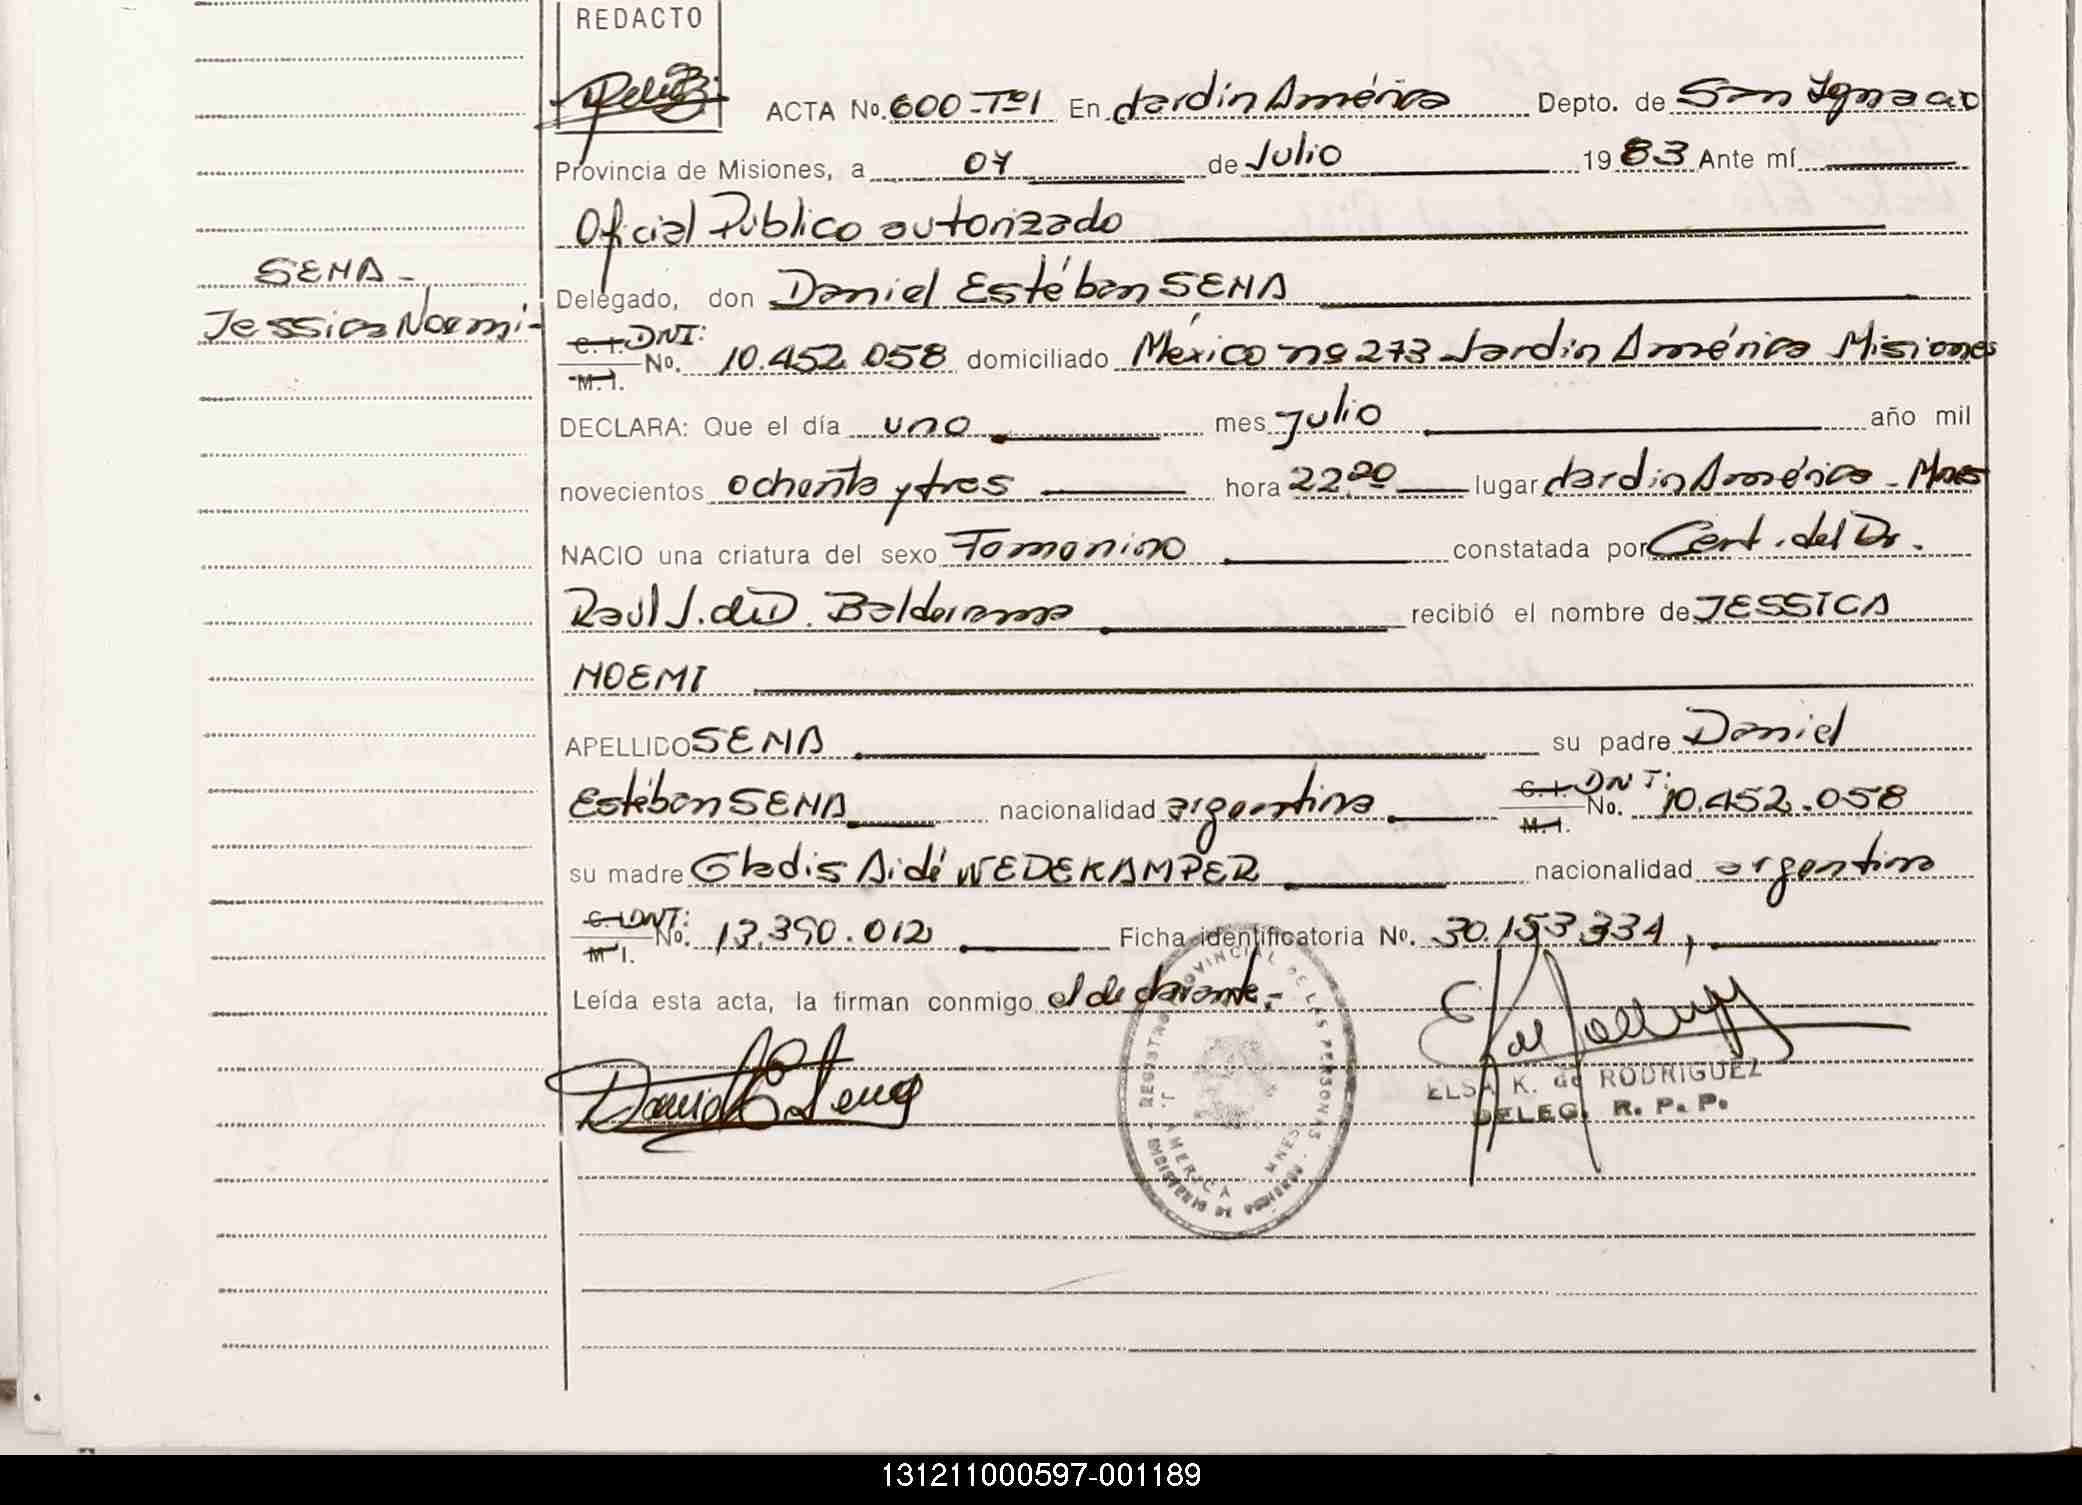 REDACTO
ACTA No. 600-Tº1 En Jardín América Depto. de San Ignacio
Provincia de Misiones, a 07 de Julio 1983 Ante mí
Oficial Público autorizado
SENA-
Delegado, don Daniel Estéban SENA
Jessica Noemi-
C.I. DNI:
No. 10.452.058 domiciliado México nº 273 Jardín América Misiones
M.I.
DECLARA: Que el día uno mes Julio año mil
novecientos ochenta y tres hora 22,20 lugar Jardín América - Mnes
NACIO una criatura del sexo Femenino constatada por Cert. del Dr.
Raúl J. de D. Balderrama recibió el nombre de JESSICA
NOEMI
APELLIDO SENA su padre Daniel
Estéban SENA nacionalidad argentina C.I. DNI: No. 10.452.058
M.I.
su madre Gladis Aidé WEDEKAMPER nacionalidad argentina
C.I. DNI: No. 13.390.012 Ficha identificatoria No. 30.153.334,
M.I.
Leída esta acta, la firman conmigo el declarante,-
REGISTRO PROVINCIAL DE LAS PERSONAS
J. AMERICA MNES.
Daniel E. Sena
ELSA K. de RODRIGUEZ
DELEG. R. P. P.
131211000597-001189